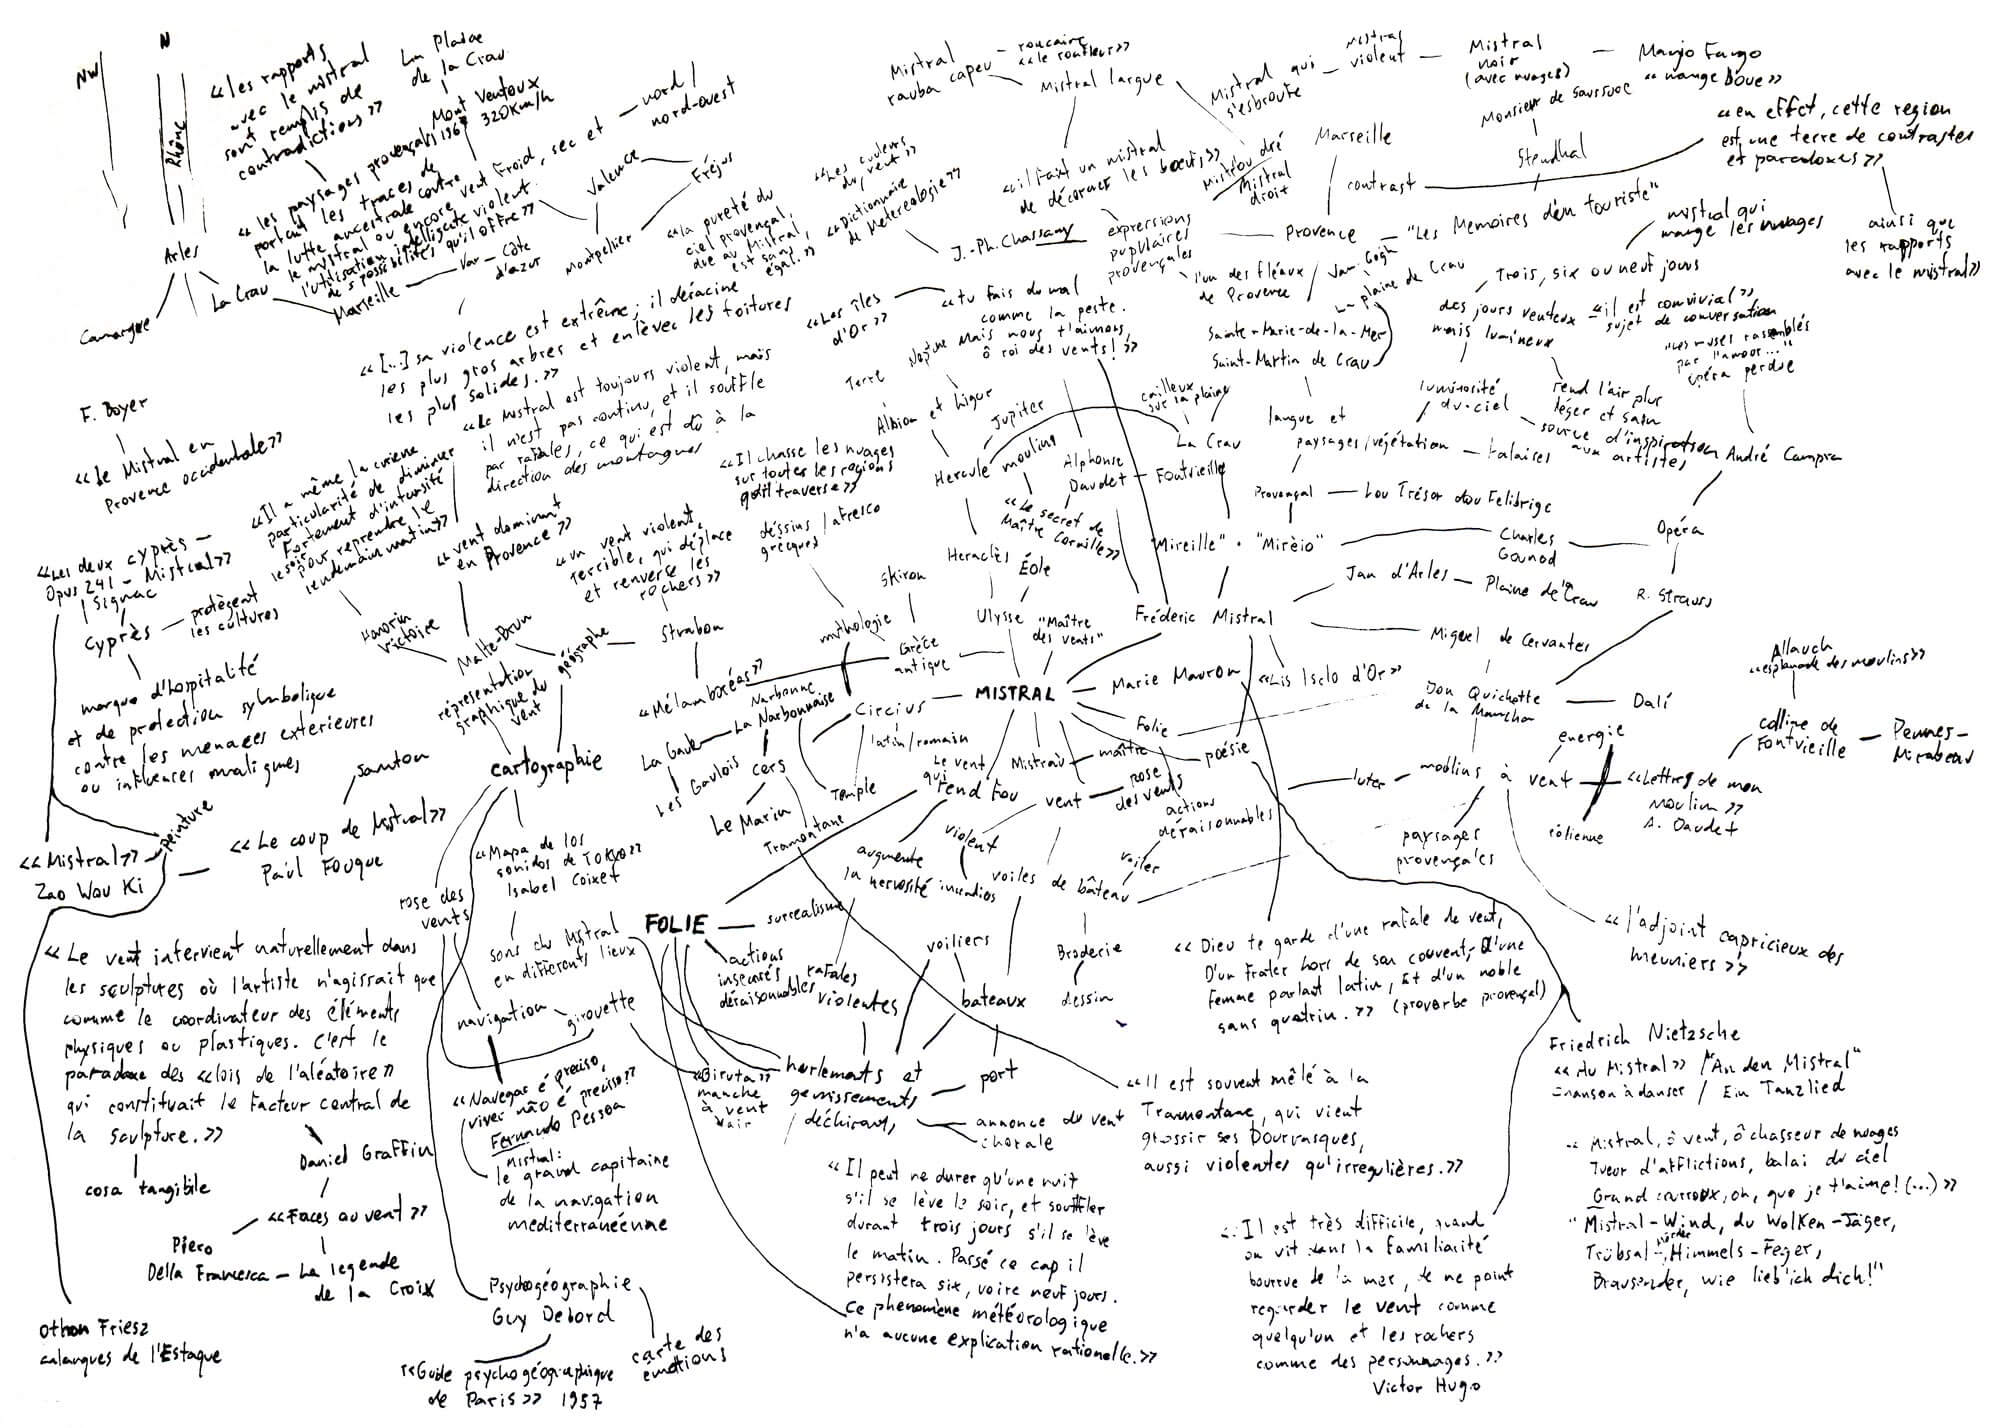 NW
N
Rhône
Arles
Camargue
La Crau
Marseille
Var - Côte
d'azur
Montpellier
Valence
Fréjus
«les rapports
avec le mistral
sont remplis de
contradictions»
La Plaine
de la Crau
Mont Ventoux
1967 320Km/h
«les paysages provençals
portent les traces de
la lutte ancestrale contre
le mystral ou encore
l'utilisation intelligente
des possibilités qu'il offre»
vent froid, sec et
violent
nord/
nord-ouest
F. Boyer
«Le Mistral en
Provence occidentale»
«[...] sa violence est extrême; il déracine
les plus gros arbres et enlèvec les toitures
les plus solides.»
«Le Mistral est toujours violent, mais
il n'est pas continu, et il souffle
par rafales, ce qui est dû à la
direction des montagnes
«Il a même la curieuse
particularité de diminuer
fortement d'intensité
le soir
pour reprendre le
lendemain matin»
«la pureté du
ciel provençal,
due au Mistral,
est sans
égal.»
«Les couleurs
du vent»
«Dictionnaire
de Métereologie»
J.-Ph. Chassany
Mistral
rauba capeu
roucaire
«le ronfleur»
Mistral largue
«il fait un mistral
de décorner les bœufs»
expressions
pupulaires
provençales
Mistral qui
s'esbroute
Mistral
violent
Mistral
noir
(avec nuages)
Manjo Fango
«mange boue»
Mistrau dré
Mistral
droit
Marseille
contrast
Monsieur de Saussure
Stendhal
«en effet, cette region
est une terre de contrastes
et paradoxes»
ainsi que
les rapports
avec le mistral»
Provence - "Les Memoires d'en touriste"
l'un des fléaux
de Provence
Van Gogh
La plaine de Crau
mistral qui
mange les nuages
Trois, six ou neuf jours
des jours venteux
mais lumineux
«il est convivial»
sujet de conversation
"Les muses rassemblés
par l'amour..."
opéra perdue
Sainte-Marie-de-la-Mer
Saint-Martin de Crau
luminosité
du ciel
rend l'air plus
léger et sain
source d'inspiration
aux artistes
André Campra
«Les îles
d'Or»
«tu fais du mal
comme la peste.
Mais nous t'aimons,
ô roi des vents!»
Terre
Neptune
Albion et Ligur
Jupiter
Hercule
moulins
cailloux
sur la plaine
La Crau
langue et
paysages/végétation - falaises
Alphonse
Daudet - Fontvieille
«Le secret de
Maître Cornille»
Provençal - Lou Trésor dou Felibrige
"Mireille" • "Mirèio"
Charles
Gounod
Opéra
R. Strauss
Jan d'Arles - Plaine de la
Crau
Miguel de Cervantes
Frédéric Mistral
«Lis Isclo d'Or»
Don Quichotte
de la Mancha
Dalí
Allauch
«esplanade des moulins»
colline de
Fontvieille
Pennes-
Mirabeau
energie
moulins à vent
éolienne
luter
«Lettres de mon
Moulin»
A. Daudet
paysages
provençales
«l'adjoint capricieux des
meuniers»
«Les deux cyprès -
Opus 241 - Mistral»
Signac
Cyprès
protègent
les cultures
marque d'hospitalité
et de protection symbolique
contre les menaces exterieures
ou influences malignes
«vent dominant
en Provence»
«Il chasse les nuages
sur toutes les regions
qu'il traverse»
«un vent violent,
terrible, qui déplace
et renverse les
rochers»
déssins/afresco
grecques
Honorin
Victoire
Malte-Brun
géographe
Strabon
«Mélamboréas»
mithologie
Skiron
Grèce
antique
Heraclès
Éole
Ulysse
"Maître
des vents"
représentation
graphique du
vent
cartographie
Narbonne
La Narbonnaise
La Gaule
Les Gaulois
cers
Le Marin
Circius
latin/romain
Temple
Tramontane
MISTRAL
Marie Mauron
Folie
poésie
Mistrau
maître
vent
rose
des vents
Le vent
qui
rend fou
violent
augmente
la nervosité
incendies
actions
déraisonnables
voiles de bâteau
voiler
Broderie
dessin
voiliers
bateaux
port
santon
peinture
«Mistral»
Zao Wou Ki
«Le coup de Mistral»
Paul Fouque
rose des
vents
«Mapa de los
sonidos de TOKYO»
Isabel Coixet
sons du Mistral
en différents lieux
FOLIE
surrealisme
actions
insensés
déraisonnables
rafales
violentes
navigation
girouette
«Biruta»
manche
à vent
air
hurlements et
gemissements
déchirants
annonce du vent
chorale
«Le vent intervient naturellement dans
les sculptures où l'artiste n'agissait que
comme le coordinateur des éléments
physiques ou plastiques. C'est le
paradoxe des «lois de l'aléatoire»
qui constituait le facteur central de
la sculpture.»
cosa tangibile
Daniel Graffin
«Faces au vent»
Piero
Della Francesca - La legende
de la Croix
Othon Friesz
calanques de l'Estaque
«Navegar é preciso,
viver não é preciso!»
Fernando Pessoa
Mistral:
le grand capitaine
de la navigation
mediterranéenne
Psychogéographie
Guy Debord
«Guide psychogéographique
de Paris» 1957
carte des
emotions
«Dieu te garde d'une rafale de vent,
D'un frater hors de son couvent, d'une
femme parlant latin, Et d'un noble
sans quatrin.» (proverbe provençal)
«Il est souvent mêlé à la
Tramontane, qui vient
grossir ses bourrasques,
aussi violentes qu'irregulières.»
«Il peut ne durer qu'une nuit
s'il se lève le soir, et souffler
durant trois jours s'il se lève
le matin. Passé ce cap il
persistera six, voire neuf jours.
Ce phenomène météorologique
n'a aucune explication rationelle.»
«Il est très difficile, quand
on vit dans la familiarité
bourrue de la mer, de ne point
regarder le vent comme
quelqu'un et les rochers
comme des personnages.»
Victor Hugo
Friedrich Nietzsche
«Au Mistral» / "An den Mistral"
chanson à danser / Ein Tanzlied
«Mistral, ô vent, ô chasseur de nuages
Tueur d'afflictions, balai du ciel
Grand courroux, oh, que je t'aime! (...)»
"Mistral-Wind, du Wolken-Jäger,
Trübsal-Mörder, Himmels-Feger,
Brausender, wie lieb'ich dich!"